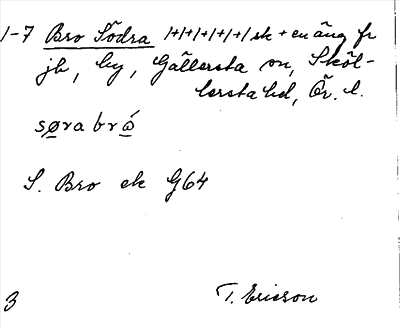 1-7 Bro Södra 1/+1/+1/+1/+1/sk + en äng fr
jb, by, Gällersta sn, Sköl-
lersta hd, Ör. l.
søra bró
S. Bro ek G64
3 T. Ericson